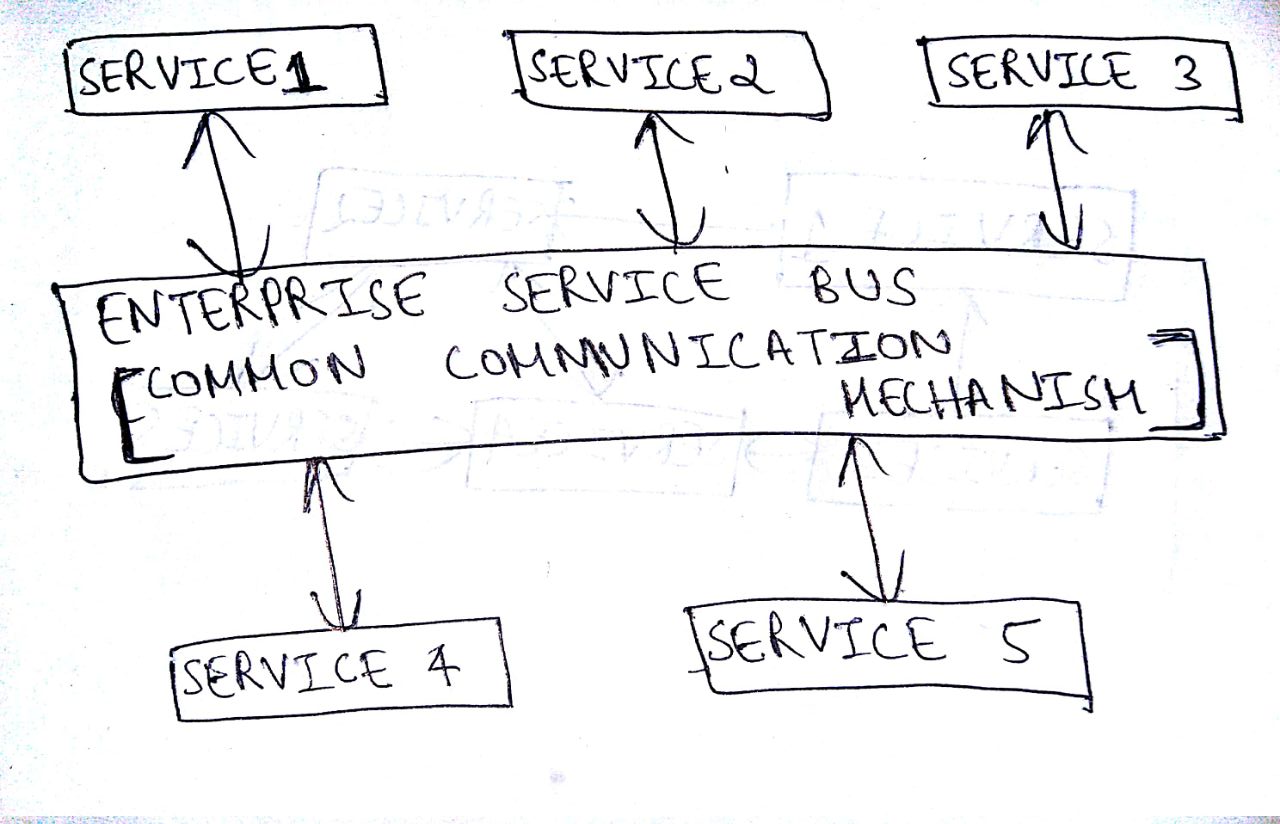 SERVICE 1
SERVICE 2
SERVICE 3
ENTERPRISE SERVICE BUS
[COMMON COMMUNICATION
MECHANISM]
SERVICE 4
SERVICE 5